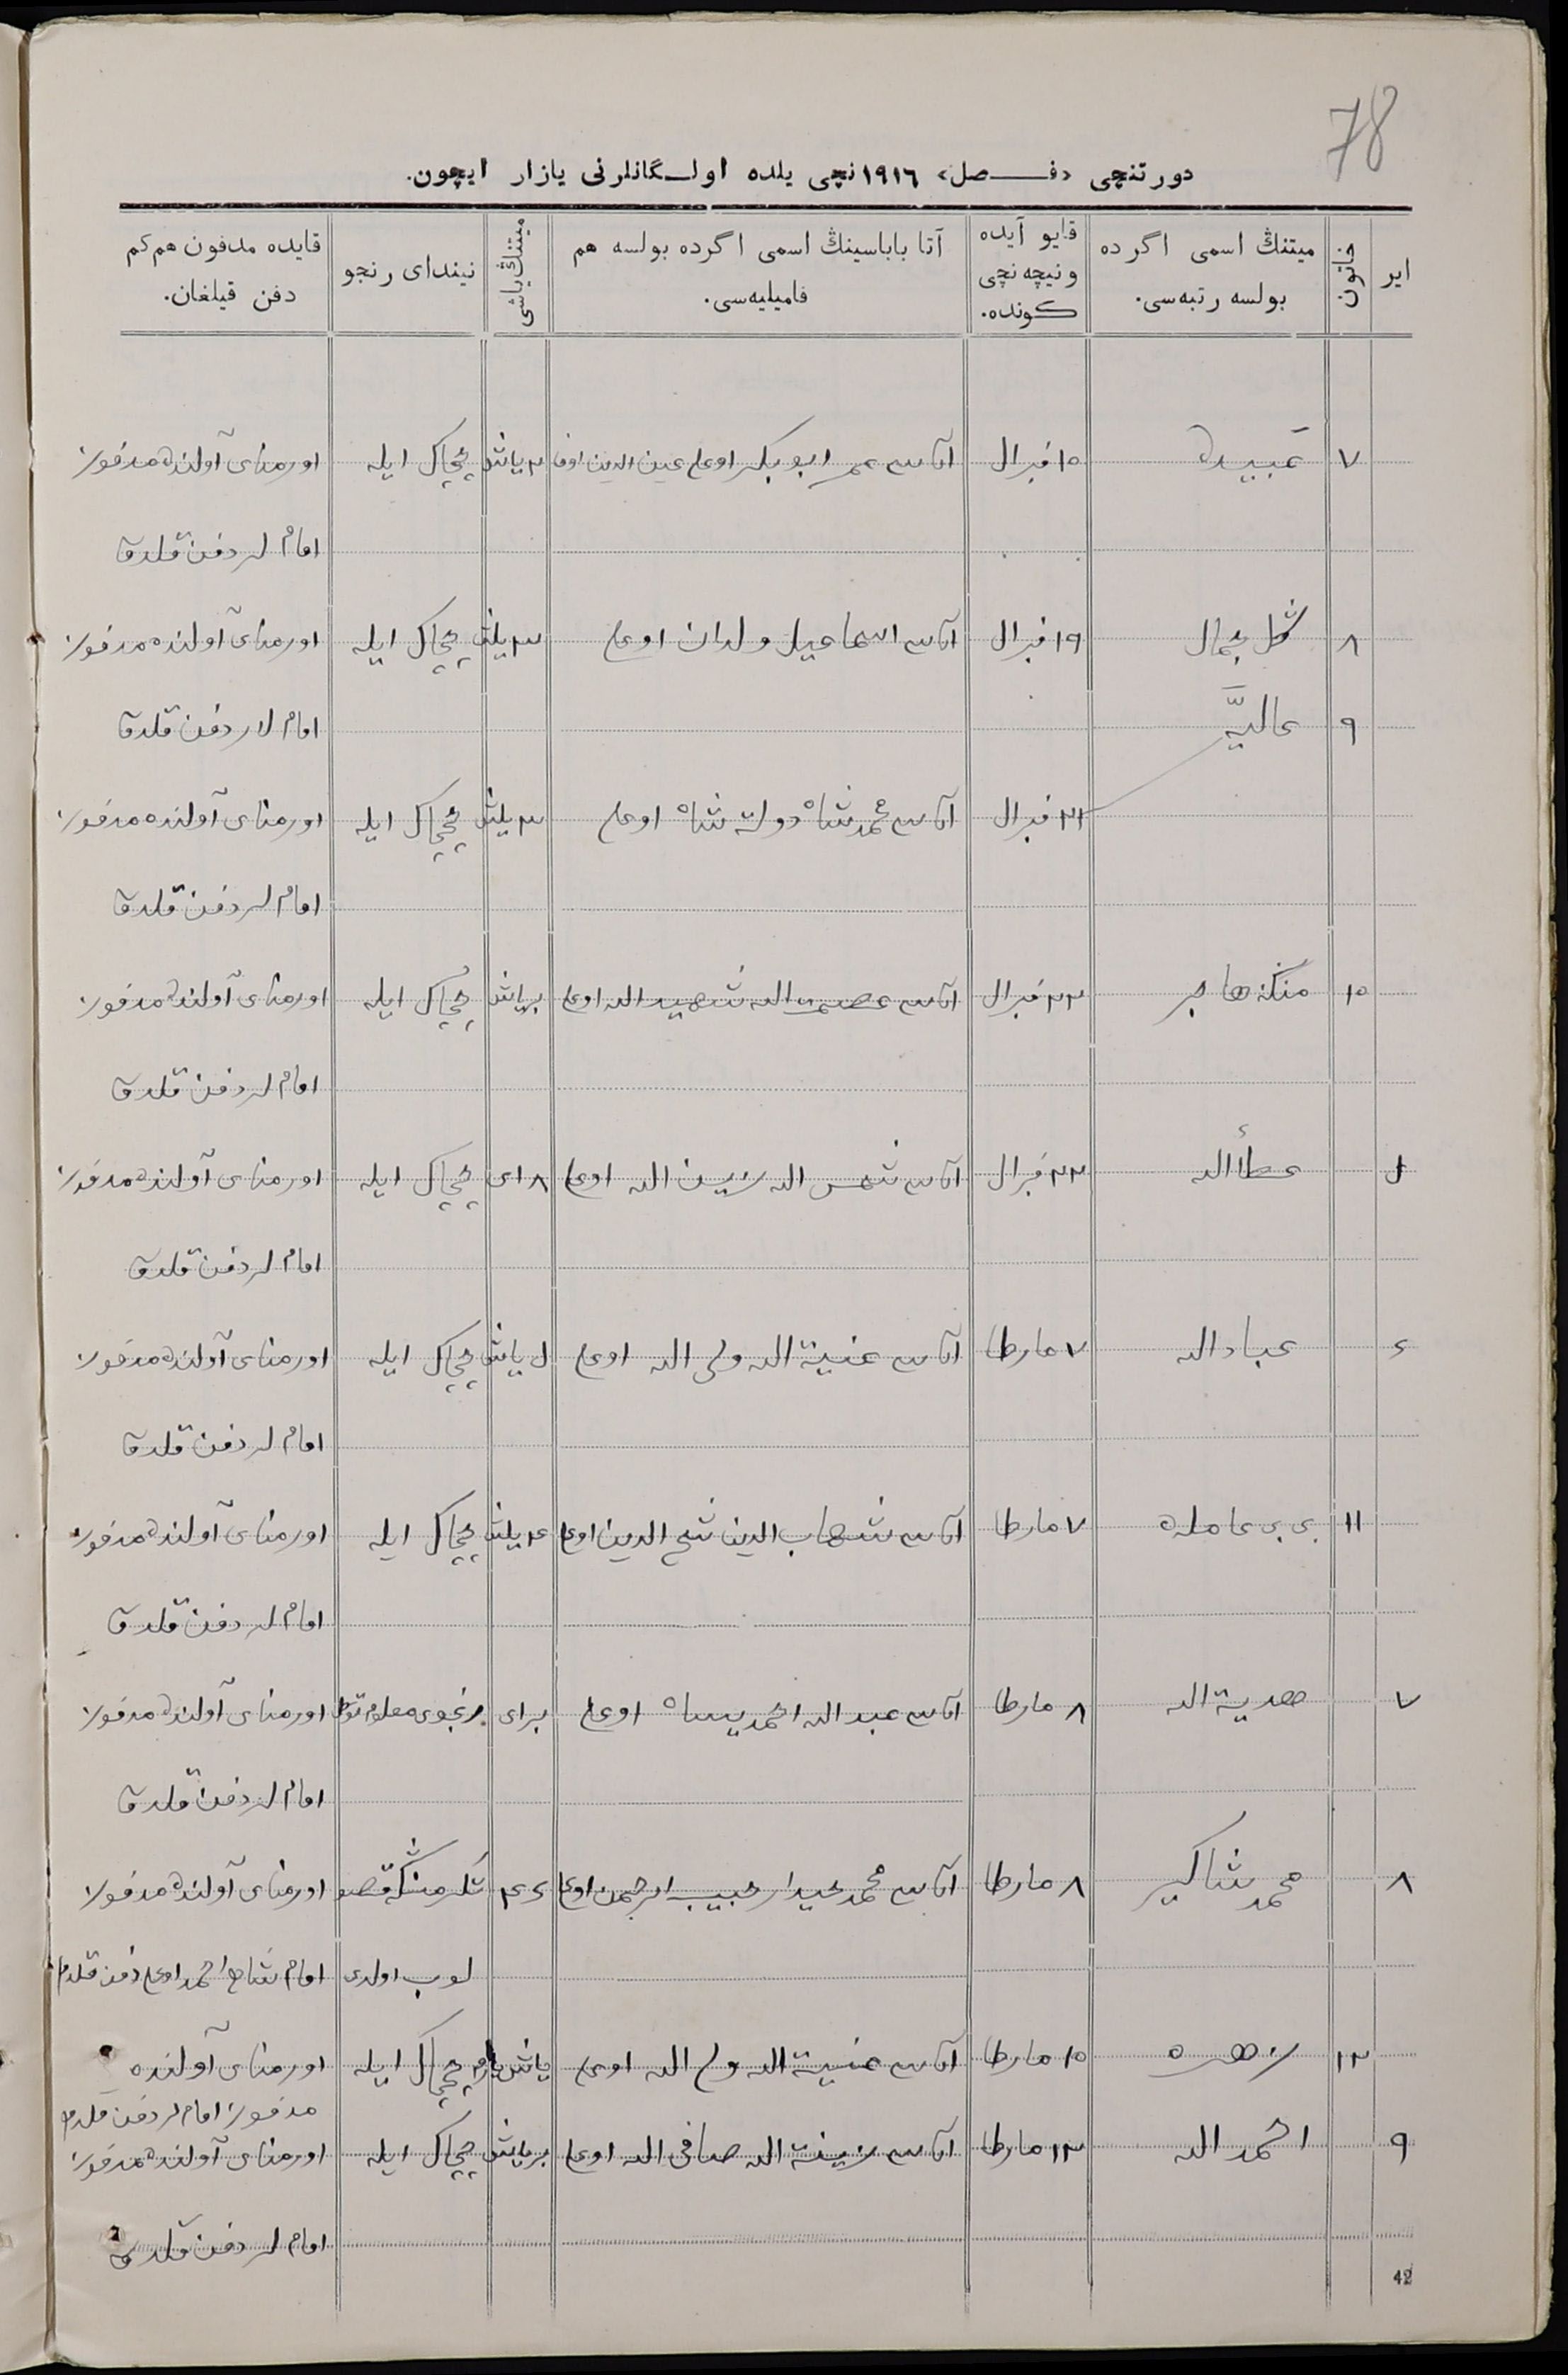 78
دورتنچی «فـــصل» ١٩١٦ نچی یلده اولـگانلرنی یازار ایچون.
ایر
خاتون
میتنڭ اسمی اگرده
بولسه رتبه‌سی.
قایو آیده
ونیچه نچی
کونده.
آتا باباسینڭ اسمی اگرده بولسه هم
فامیلیه‌سی.
میتنڭ یاشی
نیندای رنجو
قایده مدفون هم کم
دفن قیلغان.
٧ عبیده ١٥ فبرال آتاسی عمر ابو بکر اوغلی عین الدین اوف ٢ یاش چچاک ایله اورمنای آولنده مدفون
امام لر دفن قلدق
٨ گل جمال ١٩ فبرال آتاسی اسماعیل ولدان اوغلی ٣ یاش چچاک ایله اورمنای آولنده مدفون
٩ عالیّه امام لار دفن قلدق
٢١ فبرال آتاسی محمدشاه دولة شاه اوغلی ٣ یاش چچاک ایله اورمنای آولنده مدفون
امام لر دفن قلدق
١٠ منکه هاجر ٢٢ فبرال آتاسی عصمت الله شهید الله اوغلی بر یاش چچاک ایله اورمنای آولنده مدفون
امام لر دفن قلدق
عطأالله ٢٢ فبرال آتاسی شمس الله زین الله اوغلی ٨ ای چچاک ایله اورمنای آولنده مدفون
امام لر دفن قلدق
عباد الله ٧ مارطا آتاسی غنیة الله ولی الله اوغلی یاش چچاک ایله اورمنای آولنده مدفون
امام لر دفن قلدق
١١ بی بی عامله ٧ مارطا آتاسی شهاب الدین شیخ الدین اوغلی ٤ یاش چچاک ایله اورمنای آولنده مدفون
امام لر دفن قلدق
٧ هدیة الله ٨ مارطا آتاسی عبد الله اوغلی بر ای رنجوی معلوم توگل اورمنای آولنده مدفون
امام لر دفن قلدق
٨ محمد شاکیر ٨ مارطا آتاسی محمد حبیب الرحمن اوغلی اورمنای آولنده مدفون
لوب اولدی امام احمد اوغلی دفن قلدم
١٢ زهره ١٠ مارطا آتاسی غنیة الله ولی الله اوغلی چچاک ایله اورمنای آولنده
مدفون امام لر دفن قلدق
٩ احمد الله ١٣ مارطا آتاسی زینة الله صافی الله اوغلی بر یاش چچاک ایله اورمنای آولنده مدفون
امام لر دفن قلدق
42